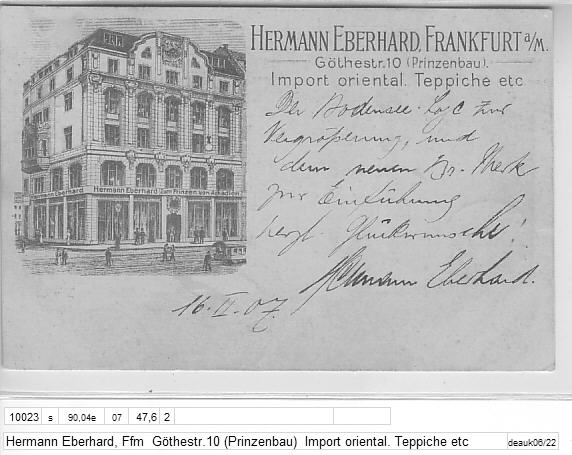 HERMANN EBERHARD, FRANKFURT a/M.
Göthestr.10 (Prinzenbau).
Import oriental. Teppiche etc
Der Bodensee-Loge zur
Vergrößerung, und
dem neuen Br. Merk
zur Einführung
herzl. Glückwünsche!
Hermann Eberhard.
16.II.07
Hermann Eberhard
Hermann Eberhard Zum Prinzen von Arkadien
10023 s 90,04e 07 47,6 2
Hermann Eberhard, Ffm Göthestr.10 (Prinzenbau) Import oriental. Teppiche etc deauk06/22